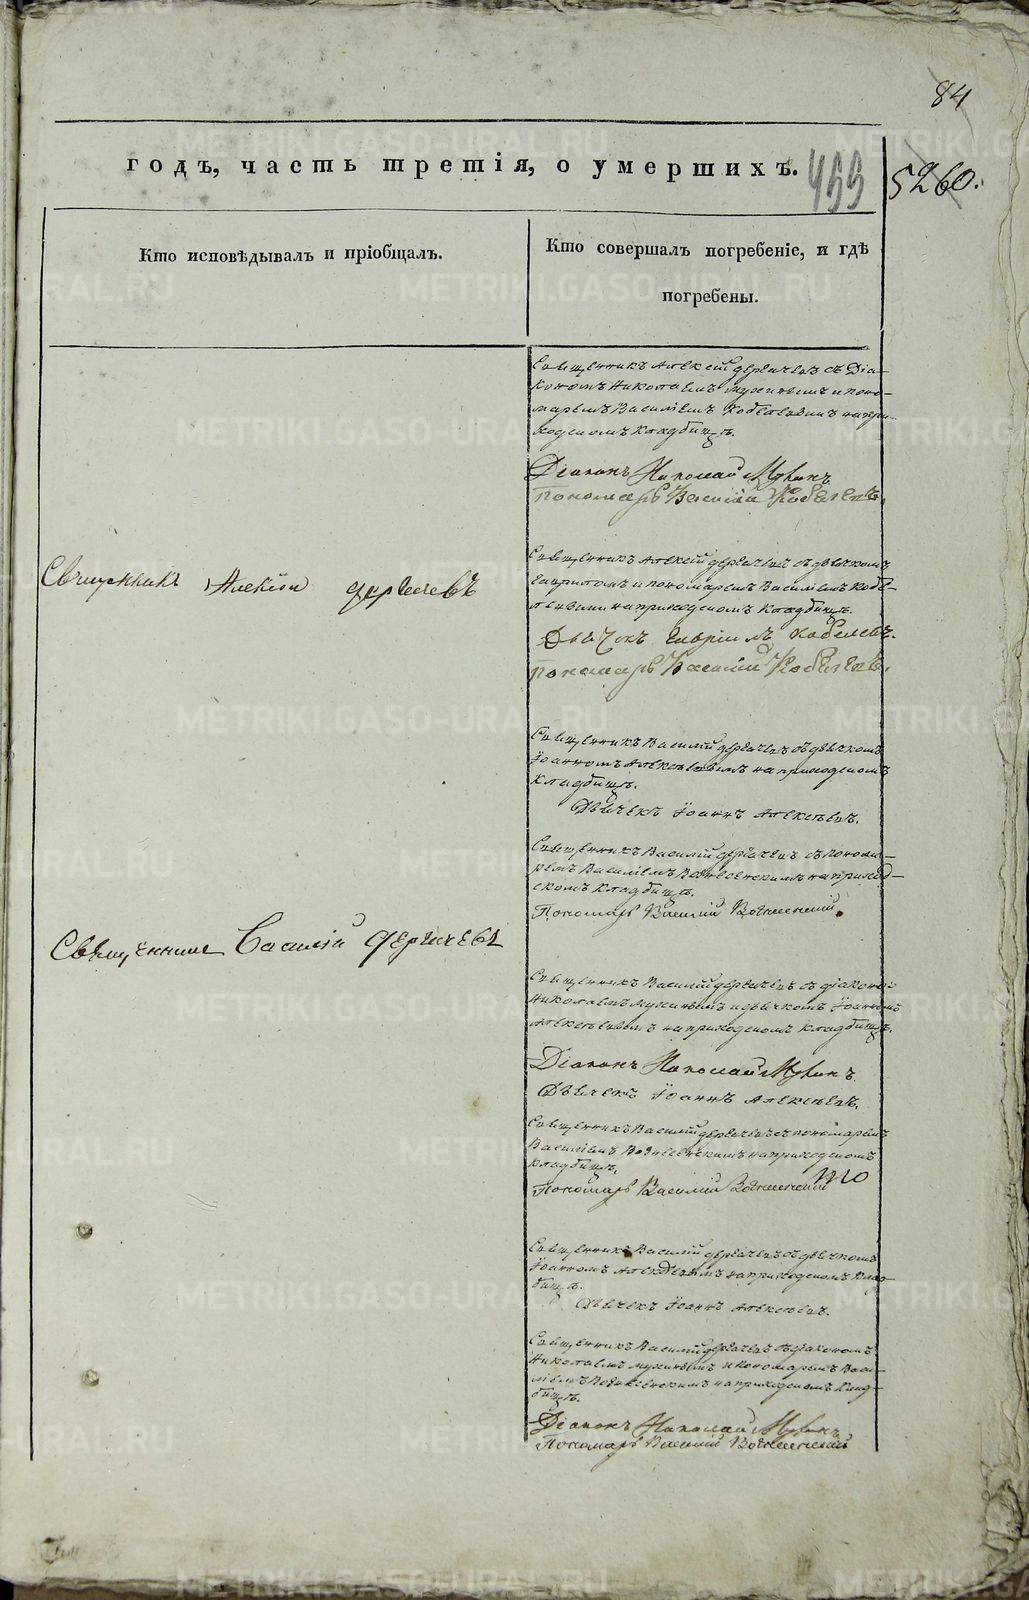 84
годъ, часть третія, о умершихъ.
455
5260.
Кто исповѣдывалъ и пріобщалъ.
Кто совершалъ погребеніе, и гдѣ
погребены.
Священникъ Алексій Дергачевъ съ Діа-
кономъ Николаемъ Мухинымъ и поно-
маремъ Василіемъ Кобелевымъ на при-
ходскомъ кладбищѣ.
Діаконъ Николай Мухинъ
Пономарь Василій Кобелевъ.
Священникъ Алексій Дергачевъ
Священникъ Алексій Дергачевъ съ дьячкомъ
Гавриломъ и пономаремъ Василіемъ Кобе-
левыми на приходскомъ кладбищѣ.
Дьячокъ Гавріилъ Кобелевъ.
Пономарь Василій Кобелевъ.
Священникъ Василій Дергачевъ съ дьячкомъ
Іоанномъ Алексѣевымъ на приходскомъ
кладбищѣ.
Дьячекъ Іоаннъ Алексѣевъ.
Священникъ Василій Дергачевъ съ понома-
ремъ Василіемъ Вознесенскимъ на приход-
скомъ кладбищѣ.
Пономарь Василій Вознесенскій.
Священникъ Василій Дергачевъ
Священникъ Василій Дергачевъ съ діакономъ
Николаемъ Мухинымъ и дьячкомъ Іоанномъ
Алексѣевымъ на приходскомъ кладбищѣ.
Діаконъ Николай Мухинъ
Дьячекъ Іоаннъ Алексѣевъ.
Священникъ Василій Дергачевъ съ пономаремъ
Василіемъ Вознесенскимъ на приходскомъ
кладбищѣ.
Пономарь Василій Вознесенскій
Священникъ Василій Дергачевъ съ дьячкомъ
Іоанномъ Алексѣевымъ на приходскомъ клад-
бищѣ.
Дьячекъ Іоаннъ Алексѣевъ.
Священникъ Василій Дергачевъ съ діакономъ
Николаемъ Мухинымъ и пономаремъ Васи-
ліемъ Вознесенскимъ на приходскомъ клад-
бищѣ.
Діаконъ Николай Мухинъ
Пономарь Василій Вознесенскій
METRIKI.GASO-URAL.RU